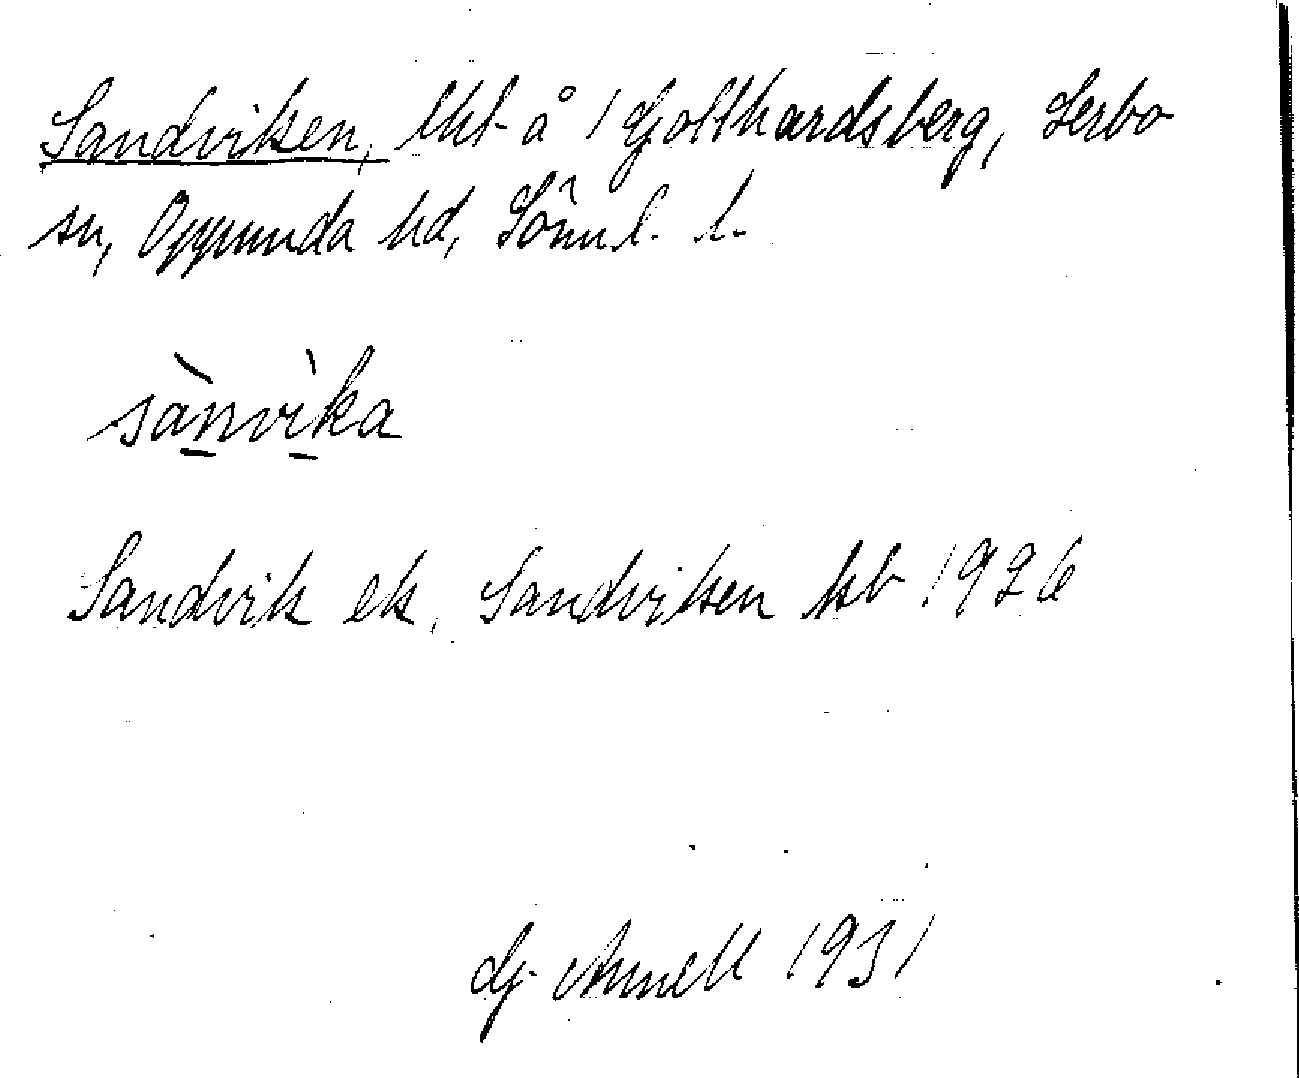 Sandviken, lht å 1 Gotthardsberg, Lerbo
sn, Oppunda hd, Söml. l.
sànvìka
Sandvik ek, Sandviken kb 1926
G. Annell 1931